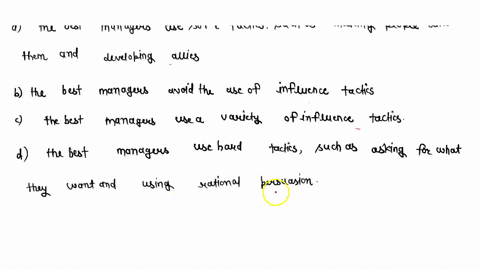 the best managers use soft tactics, such as making people
them and developing allies
b) the best managers avoid the use of influence tactics
c) the best managers use a variety of influence tactics.
d) the best managers use hard tactics, such as asking for what
they want and using rational persuasion.